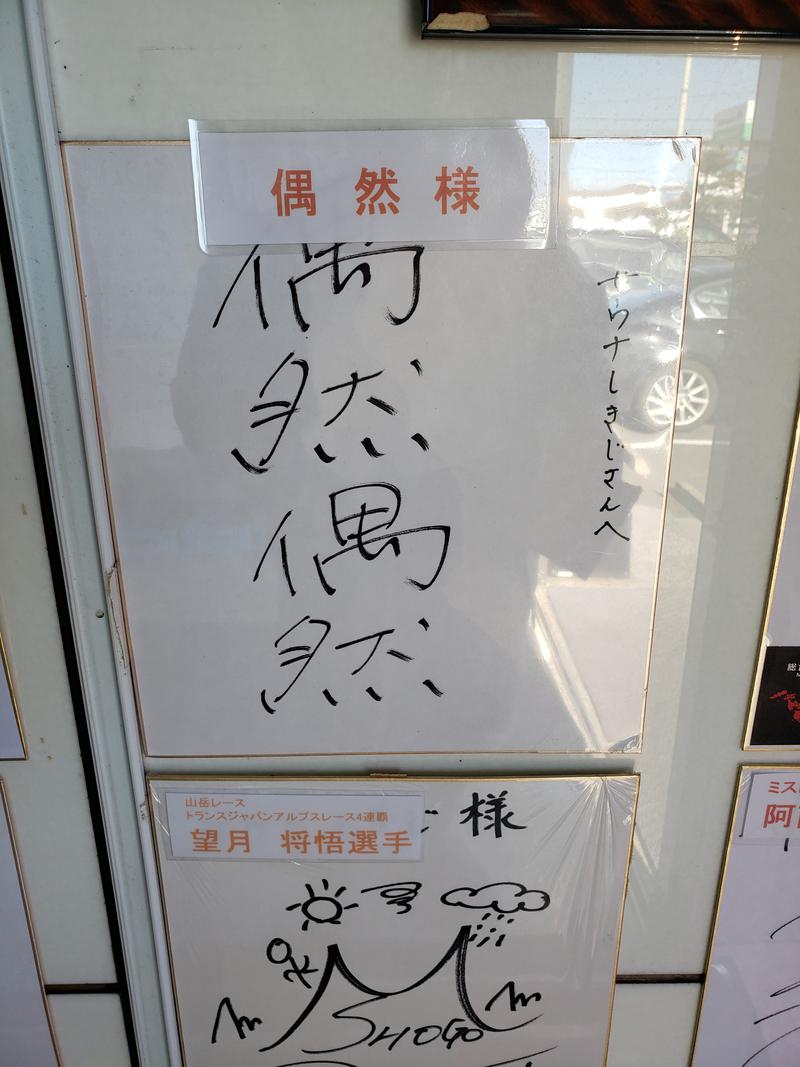 偶然様
偶
然
偶
然
さらナしきじさんへ
山岳レース
トランスジャパンアルプスレース4連覇
望月 将悟選手
様
SHOGO
ミス
阿